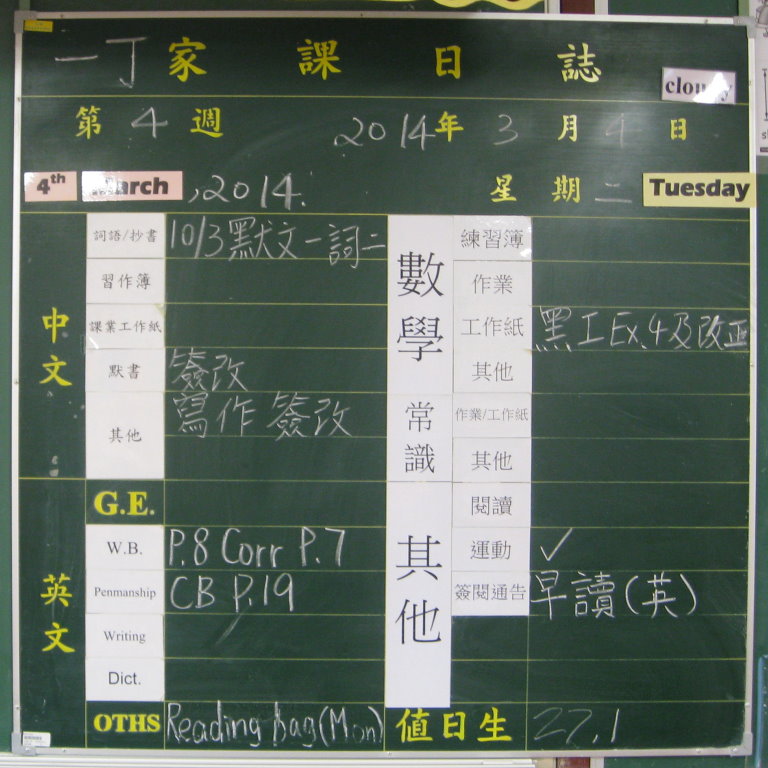 一丁家課日誌
cloudy
第4週 2014年3月4日
4th March, 2014. 星期二 Tuesday
中文
詞語/抄書 10/3默文一詞二
習作簿
課業工作紙
默書 簽改
其他 寫作簽改
英文
G.E.
W.B. P.8 Corr P.7
Penmanship CB P.19
Writing
Dict.
OTHS Reading bag(Mon)
數學
練習簿
作業
工作紙 黑工Ex.4及改正
其他
常識
作業/工作紙
其他
其他
閱讀
運動 ✓
簽閱通告 早讀(英)
值日生 27.1